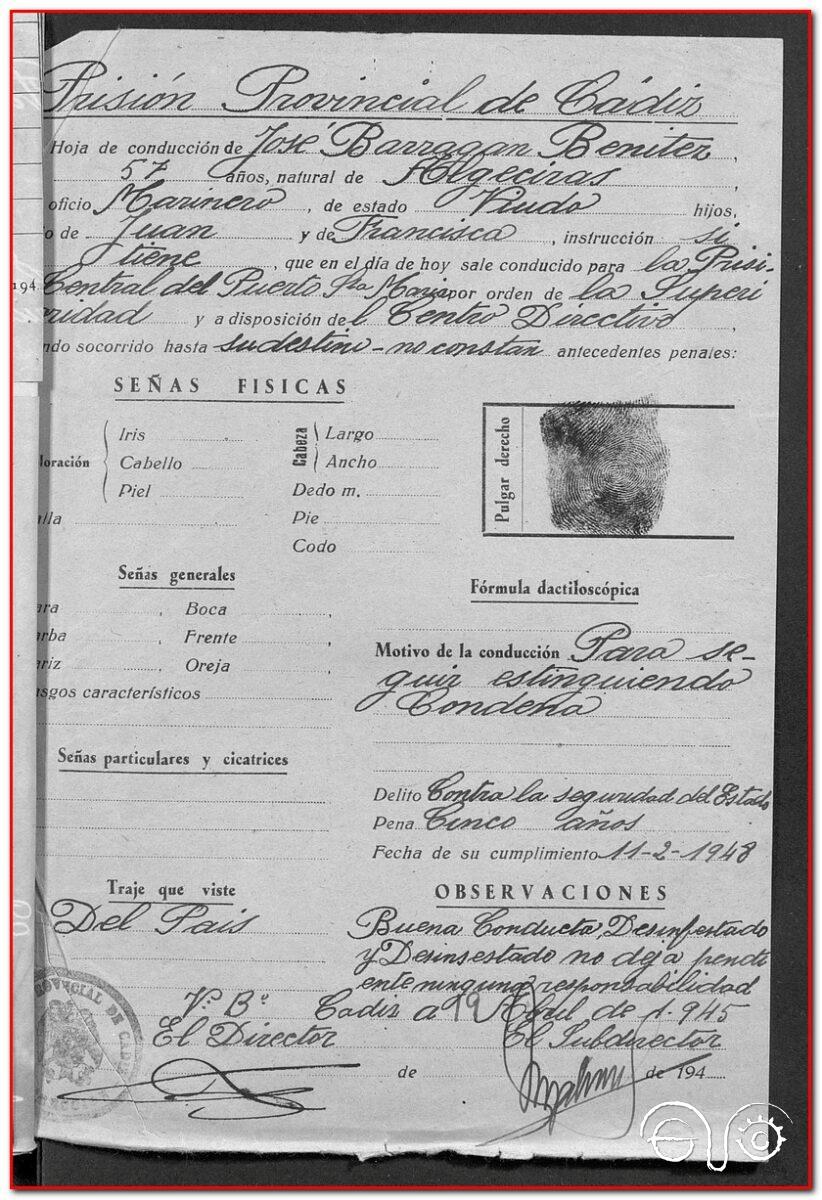 Prisión Provincial de Cádiz
Hoja de conducción de José Barragan Benitez,
57 años, natural de Algeciras,
oficio Marinero, de estado Viudo hijos,
o de Juan y de Francisca, instrucción si
tiene, que en el día de hoy sale conducido para la Prisi-
194 Central del Puerto Sta Maria por orden de la Superi
oridad y a disposición del Centro Directivo
ndo socorrido hasta su destino - no constan antecedentes penales:
SEÑAS FISICAS
loración Iris Cabello Piel
Cabeza Largo Ancho
Dedo m.
alla Pie
Codo
Pulgar derecho
Señas generales
Fórmula dactiloscópica
ara , Boca ,
arba , Frente ,
ariz , Oreja ,
asgos característicos
Motivo de la conducción Para se-
guir estinguiendo
Condena
Señas particulares y cicatrices
Delito Contra la seguridad del Estado
Pena Cinco años
Fecha de su cumplimiento 11-2-1948
Traje que viste
Del Pais
OBSERVACIONES
Buena Conducta, Desinfestado
y Desinsestado no deja pendi
ente ninguna responsabilidad
Vº Bº Cadiz a 19 Abril de 1.945
El Director El Subdirector
de de 194